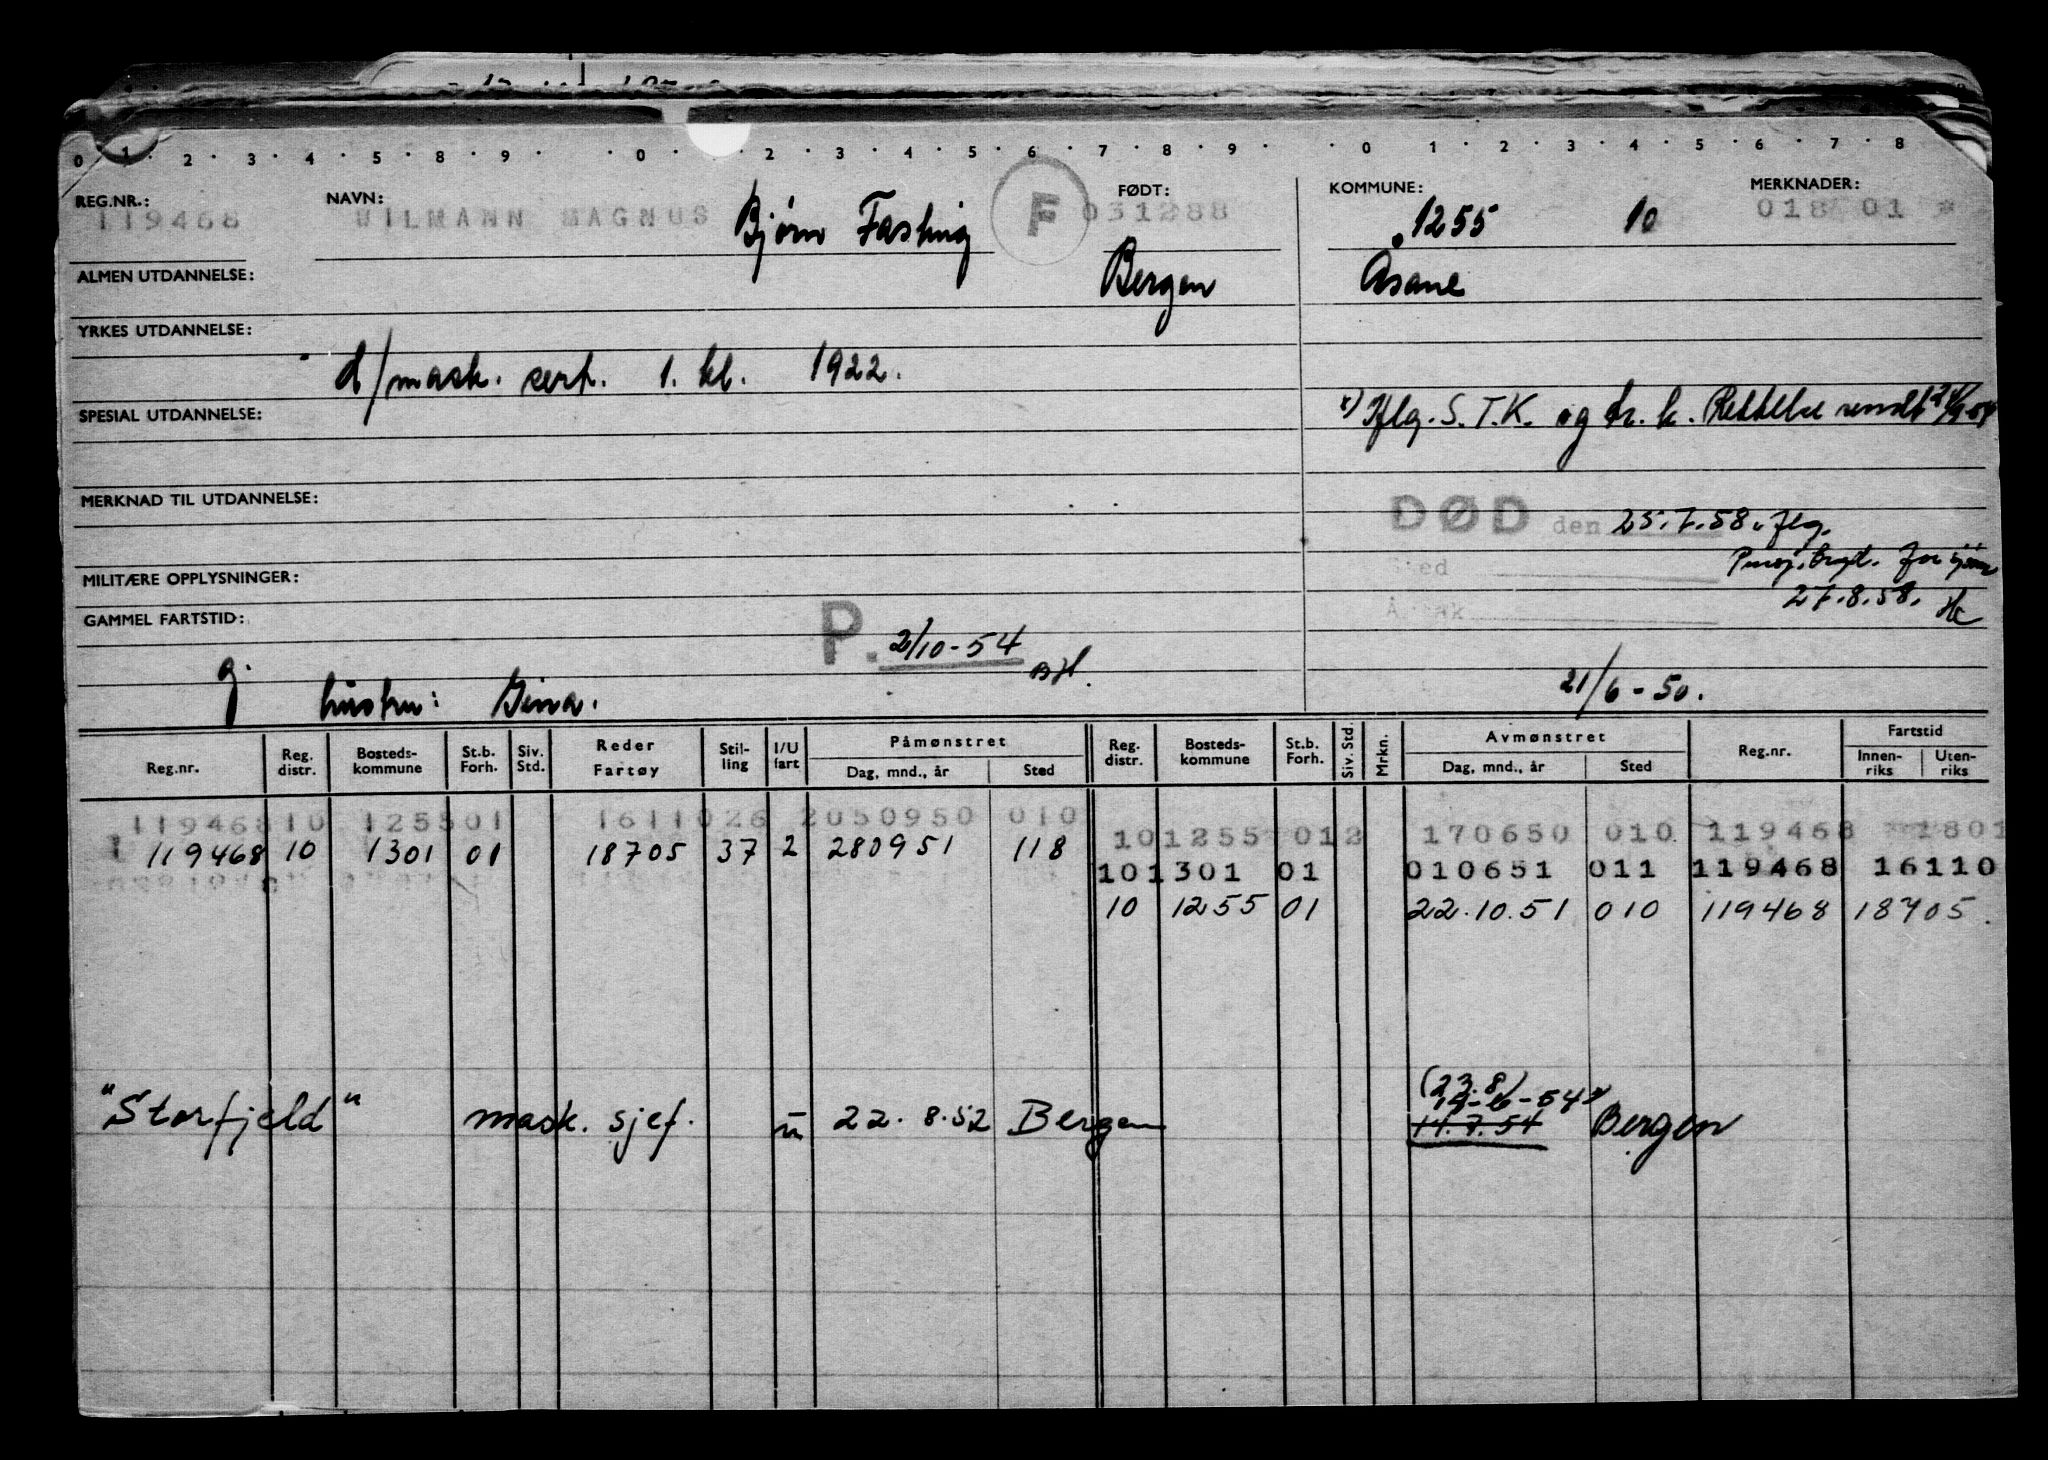 0 1 2 3 4 5 6 7 8 9 0 2 3 4 5 6 7 8 9 0 1 2 3 4 5 6 7 8
REG.NR.: NAVN: FØDT: KOMMUNE: MERKNADER:
119468 WILMANN MAGNUS Bjørn Fasting F 031288 1255 10 018 01 *
ALMEN UTDANNELSE: Bergen Åsane
YRKES UTDANNELSE:
d/mask. sert. 1. kl. 1922.
SPESIAL UTDANNELSE: x) Iflg. S.T.K. og tr. k. Rettelse sendt
MERKNAD TIL UTDANNELSE: DØD den 25.7.58. flg.
MILITÆRE OPPLYSNINGER: Sted for sjøm
GAMMEL FARTSTID: Årsak 27.8.58.
P. 2/10-54
g. hustru: Gina. 21/6-50.
Reg.nr. Reg. distr. Bosteds-kommune St.b. Forh. Siv. Std. Reder Fartøy Stil-ling I/U fart Påmønstret Dag, mnd., år Sted Reg. distr. Bosteds-kommune St.b. Forh. Siv. Std. Mrkn. Avmønstret Dag, mnd., år Sted Reg.nr. Fartstid Innen-riks Uten-riks
119468 10 1255 01 1611026 2050950 010 10 1255 012 170650 010 119468 1801
119468 10 1301 01 18705 37 2 280951 118 10 1301 01 010651 011 119468 16110
10 1255 01 22.10.51 010 119468 18705.
"Storfjeld" mask. sjef. u 22.8.52 Bergen 14.7.54 Bergen
(23.8)